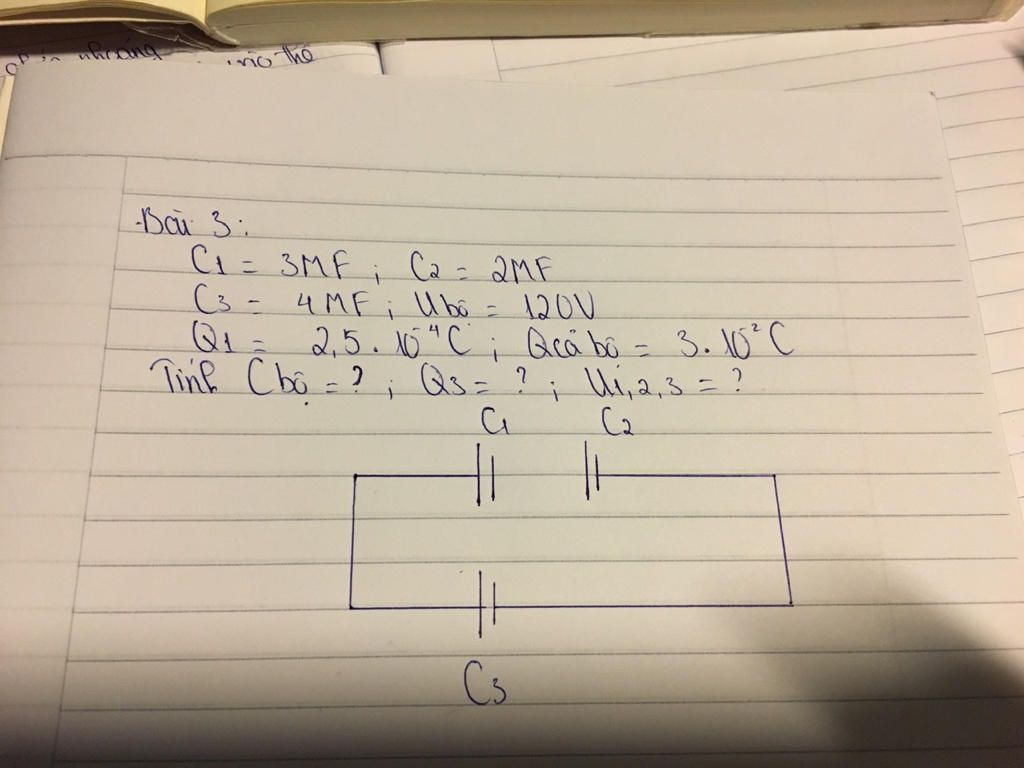 Bài 3:
C1 = 3MF ; C2 = 2MF
C3 = 4MF ; Ubộ = 120V
Q1 = 2,5 . 10⁻⁴C ; Qcả bộ = 3. 10⁻²C
Tính Cbộ = ? ; Q3 = ? ; U1,2,3 = ?
C1 C2
C3